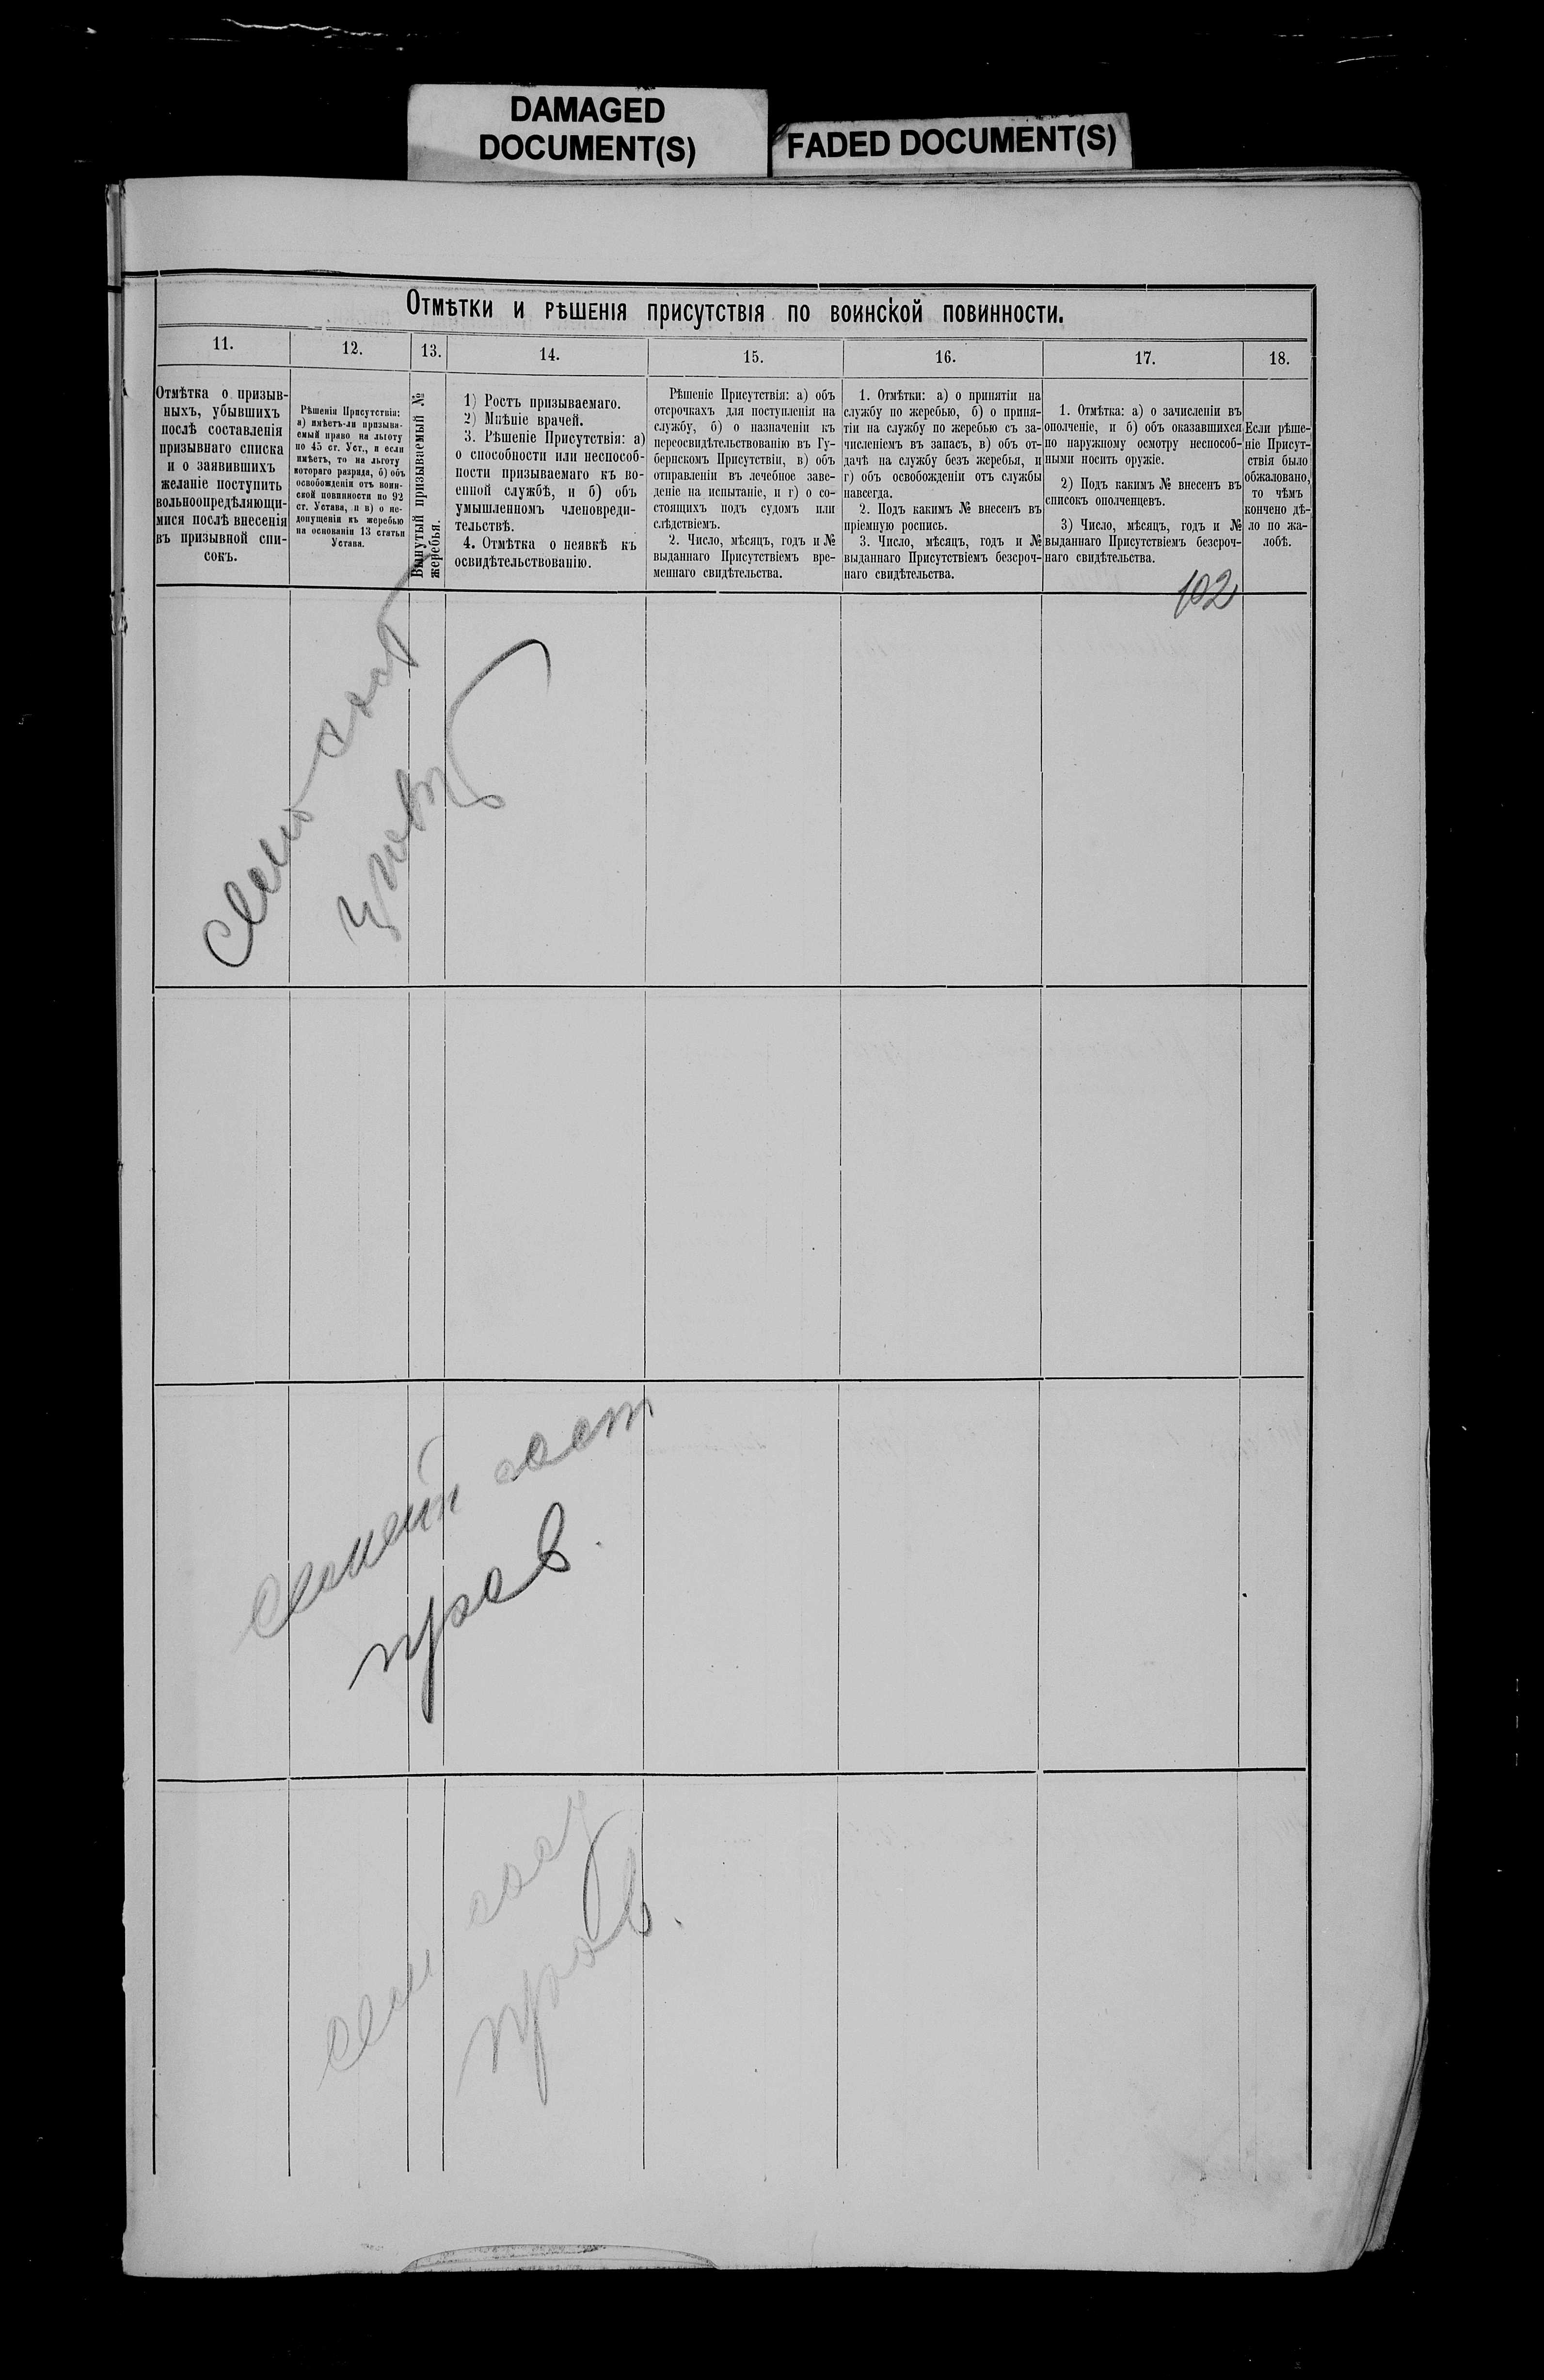 DAMAGED
DOCUMENT(S)
FADED DOCUMENT(S)
Отмѣтки и рѣшенія присутствія по воинской повинности.
11.
12.
13.
14.
15.
16.
17.
18.
Отмѣтка о призыв-
ныхъ, убывшихъ
послѣ составленія
призывнаго списка
и о заявившихъ
желаніе поступить
вольноопредѣляющи-
мися послѣ внесенія
въ призывной спи-
сокъ.
Рѣшенія Присутствія:
а) имѣетъ-ли призыва-
емый право на льготу
по 45 ст. Уст., и если
имѣетъ, то на льготу
котораго разряда, б) объ
освобожденіи отъ воин-
ской повинности по 92
ст. Устава, и в) о не-
допущеніи къ жеребью
на основаніи 13 статьи
Устава.
Вынутый призываемый №
жеребья.
1) Ростъ призываемаго.
2) Мнѣніе врачей.
3. Рѣшеніе Присутствія: а)
о способности или неспособ-
ности призываемаго къ во-
енной службѣ, и б) объ
умышленномъ членовреди-
тельствѣ.
4. Отмѣтка о неявкѣ къ
освидѣтельствованію.
Рѣшеніе Присутствія: а) объ
отсрочкахъ для поступленія на
службу, б) о назначеніи къ
переосвидѣтельствованію въ Гу-
бернскомъ Присутствіи, в) объ
отправленіи въ лечебное заве-
деніе на испытаніе, и г) о со-
стоящихъ подъ судомъ или
слѣдствіемъ.
2. Число, мѣсяцъ, годъ и №
выданнаго Присутствіемъ вре-
меннаго свидѣтельства.
1. Отмѣтки: а) о принятіи на
службу по жеребью, б) о приня-
тіи на службу по жеребью съ за-
численіемъ въ запасъ, в) объ от-
дачѣ на службу безъ жеребья, и
г) объ освобожденіи отъ службы
навсегда.
2. Подъ какимъ № внесенъ въ
пріемную роспись.
3. Число, мѣсяцъ, годъ и №
выданнаго Присутствіемъ безсроч-
наго свидѣтельства.
1. Отмѣтка: а) о зачисленіи въ
ополченіе, и б) объ оказавшихся
по наружному осмотру неспособ-
ными носить оружіе.
2) Подъ какимъ № внесенъ въ
списокъ ополченцевъ.
3) Число, мѣсяцъ, годъ и №
выданнаго Присутствіемъ безсроч-
наго свидѣтельства.
Если рѣше-
ніе Присут-
ствія было
обжаловано,
то чѣмъ
кончено дѣ-
ло по жа-
лобѣ.
102
семейн сост
прав.
сем сост
прав.